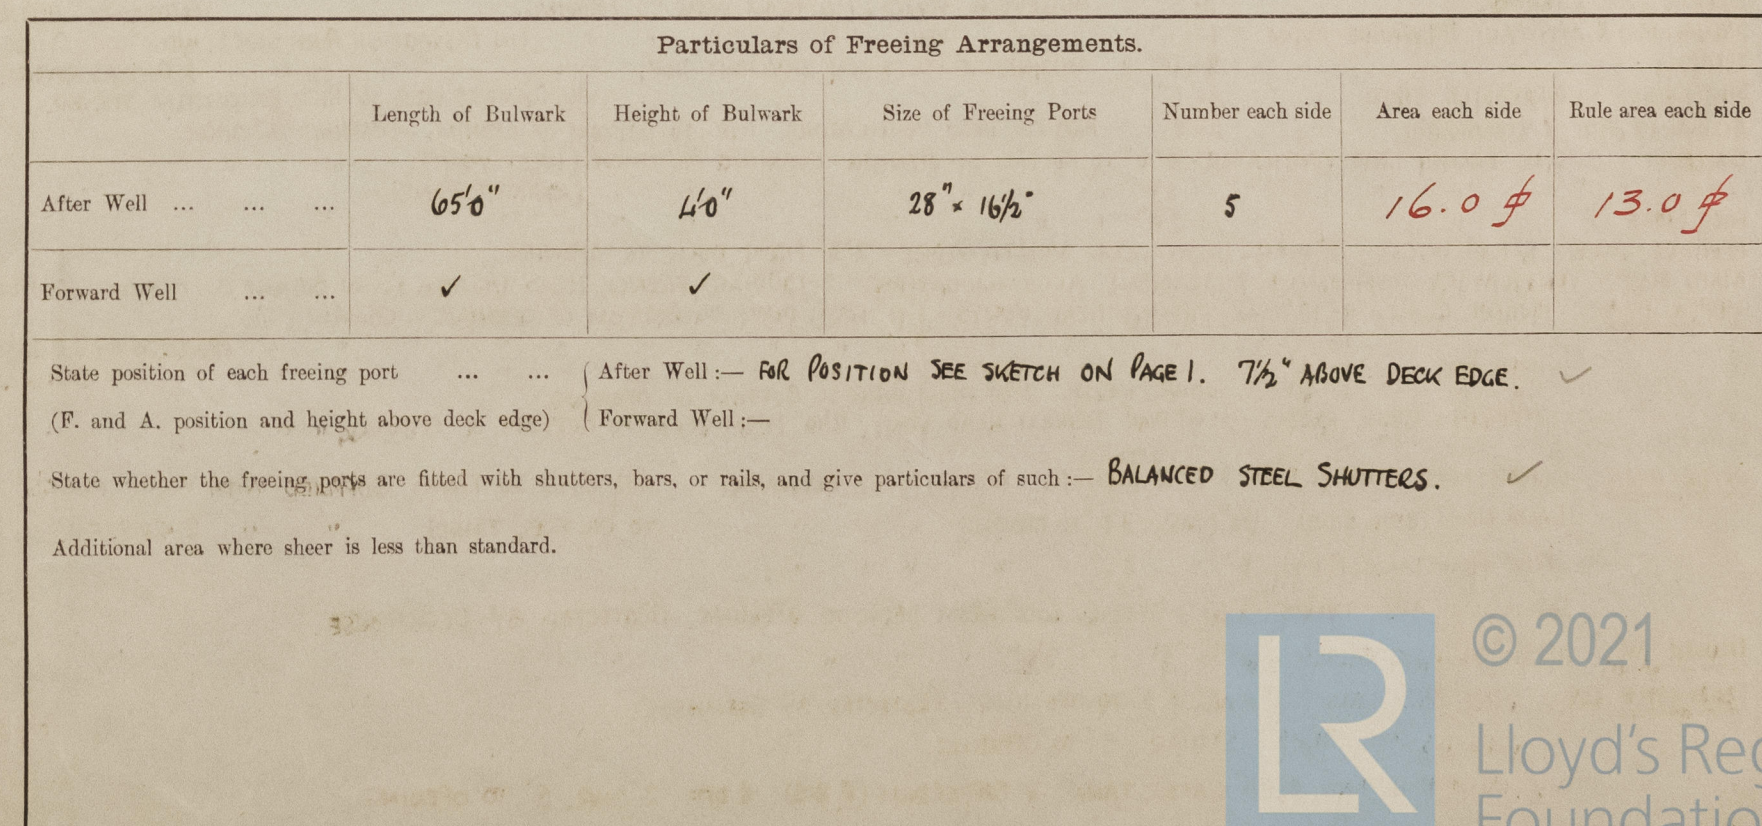 Particulars of Freeing Arrangements.
Length of Bulwark Height of Bulwark Size of Freeing Ports Number each side Area each side Rule area each side
After Well ... ... ... 65'0" 4'0" 28" × 16½" 5 16.0 13.0
Forward Well ... ... ✓ ✓
State position of each freeing port ... ... After Well :— FOR POSITION SEE SKETCH ON PAGE 1. 7½" ABOVE DECK EDGE. ✓
(F. and A. position and height above deck edge) Forward Well :—
State whether the freeing ports are fitted with shutters, bars, or rails, and give particulars of such :— BALANCED STEEL SHUTTERS. ✓
Additional area where sheer is less than standard.
LR
© 2021
Lloyd's Reg
Foundatio